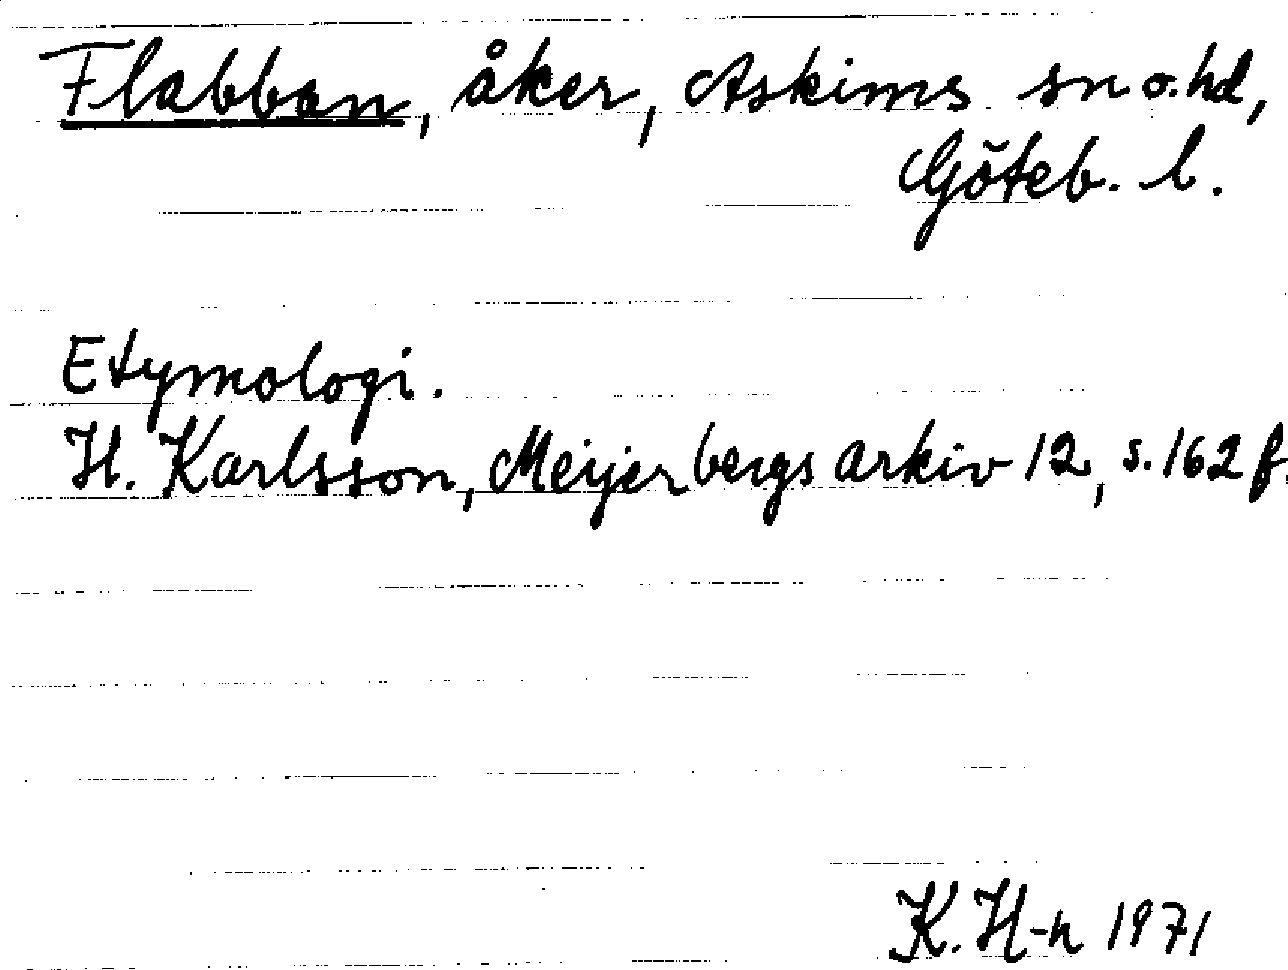 Flabban, åker, Askims sn o. hd,
Göteb. l.
Etymologi.
H. Karlsson, Meijerbergs arkiv 12, s. 162 f.
K. H-n 1971